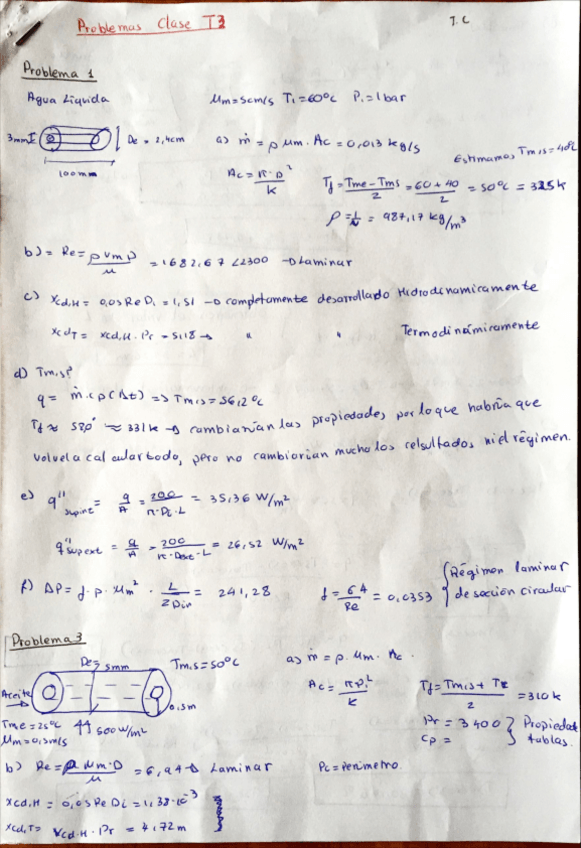 Problemas Clase T3
T.C
Problema 1
Agua Líquida
Um=5cm/s T1=60ºC P1=1bar
3mm De = 2,4cm
100mm
a) ṁ = ρ Um. Ac = 0,013 kg/s
Estimamos Tm,s=40ºC
Ac = π·D² / 4
Tf = Tme-Tms / 2 = 60+40 / 2 = 50ºC = 325k
ρ = 1/v = 987,17 kg/m³
b) = Re = ρ Vm D / μ = 1682,67 <2300 → Laminar
c) Xcd,H = 0,05 Re Di = 1,51 → completamente desarrollado Hidrodinamicamente
XcdT = Xcd,H. Pr = 5,18 → " " Termodinámicamente
d) Tm,s?
q = ṁ.cp(Δt) => Tm,s = 56,2ºC
Tf ≈ 58,0º ≈ 331k → cambiarían las propiedades, por lo que habría que
volvel a calcular todo, pero no cambiorian mucho los relsultados ni el régimen.
e) q"supint = q/A = 200 / π·Di·L = 35,36 W/m²
q"supext = q/A = 200 / π·Dext·L = 26,52 W/m²
f) ΔP = f·ρ·Um² · L / 2Din = 241,28
f = 64 / Re = 0,0353
Régimen laminar
de sección circular
Problema 3
De = 5mm Tm,s=50ºC
Aceite
0,5m
Tme = 25ºC 500W/m²
Um=0,5m/s
a) ṁ = ρ. Um. Ac.
Ac = πDi² / 4
Tf = Tm,s + Te / 2 = 310k
Pr = 3400
Cp =
Propiedad
tablas.
b) Re = ρ Um·D / μ = 6,94 → Laminar
Pc = Perímetro.
Xcd,H = 0,05 Re Di = 1,38·10⁻³
Xcd,T = Xcd,H · Pr = 4,72m